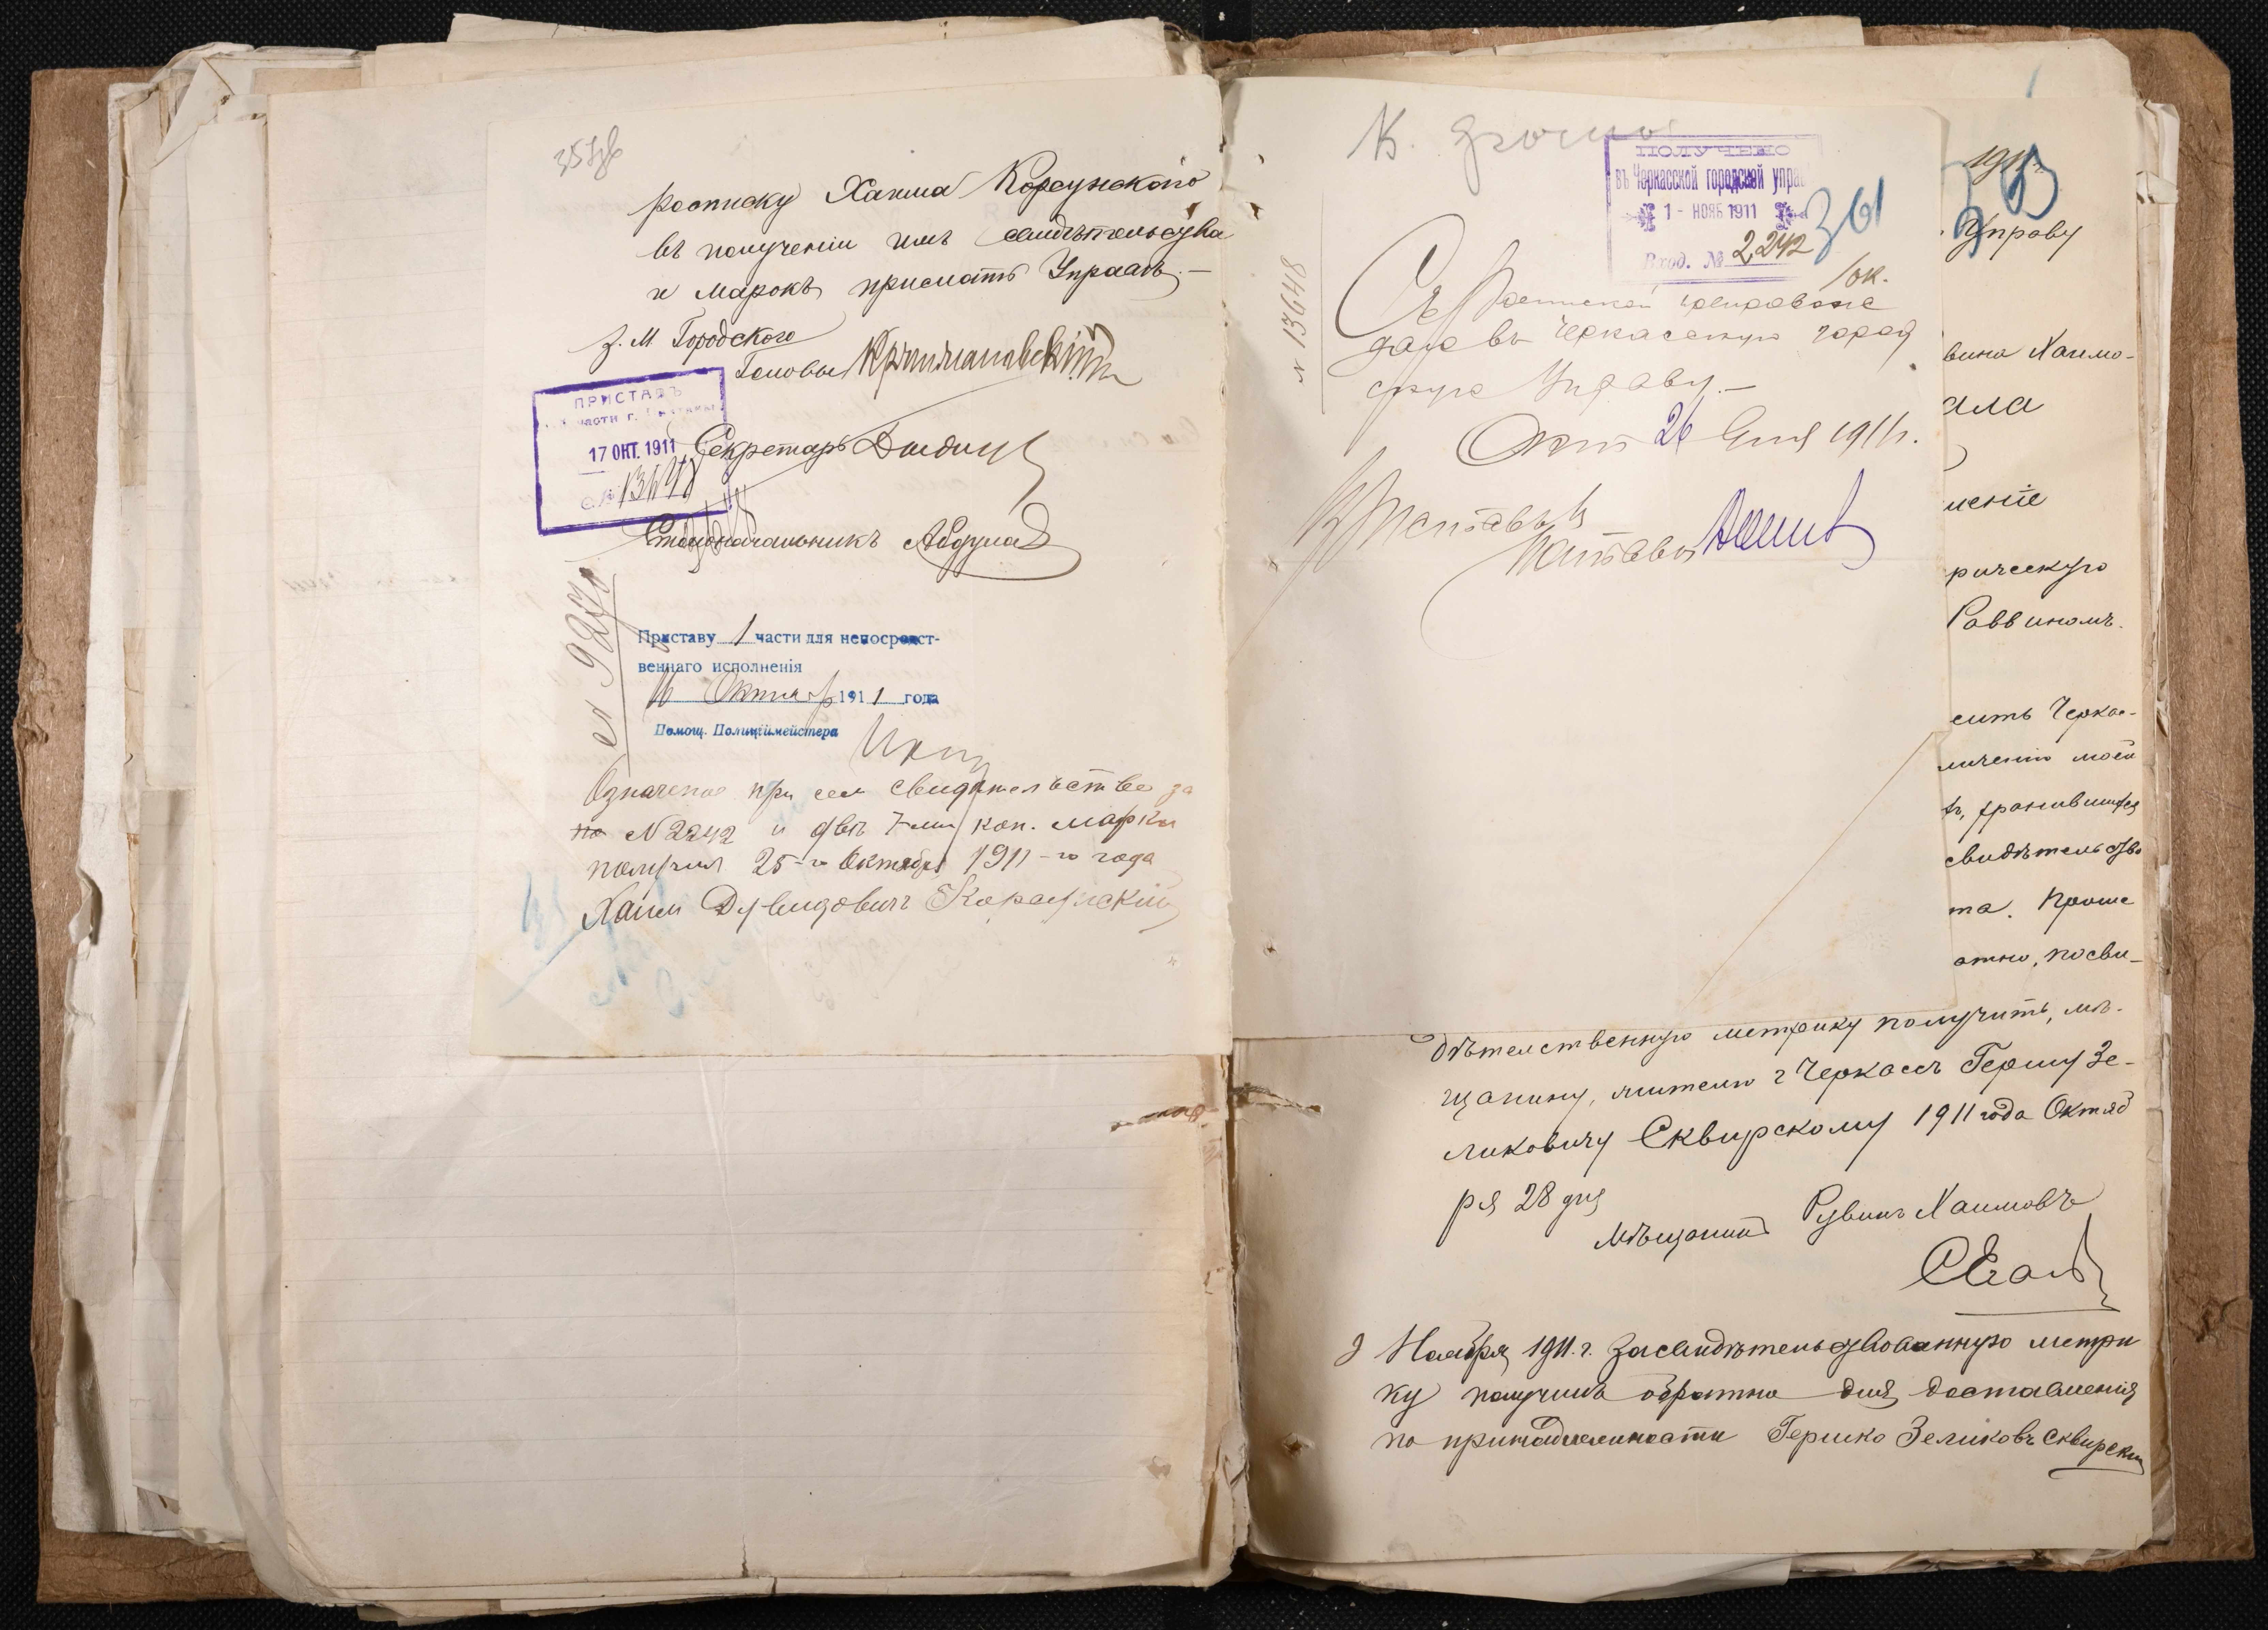 росписку Хаима Корсунскаго
въ полученіи имъ свидѣтельства
и марокъ прислать Управѣ.—
З. М. Городского
Головы
ПРИСТАВЪ
части г.
17 ОКТ. 1911
Секретарь
13648
Столоначальникъ
Приставу 1 части для непосредст-
веннаго исполненія
16 Октября 1911 года
Помощ. Полиціймейстера
Означеное при сем свидетельство за
по № 2242 и двѣ 7-ми коп. марки
получил 25-го Октября 1911-го года
Хаим Дувидович Корсунский
К.
ПОЛУЧЕНО
въ Черкасской городской упра
1 - НОЯБ 1911
Вход. № 2242
361
№ 13648
Съ роспиской
въ Черкасскую город
скую Управу.—
26 дня 1911 г.
Приставъ
1911
Управу
вина Хаимо-
ала
леніе
рическую
Раввиномъ.
сить Черкас-
личенію моей
свидѣтельство
та. Проше
атно, посви-
дѣтелственную метрику получить, мѣ-
щанину, жителю г Черкассъ Гершу Зе-
ликовичу Сквирскому 1911 года Октяб
ря 28 дня
Мѣщанинъ Рувинъ Хаимовъ
Сегалъ
Ноября 1911 г. засвидѣтельствованную метри
ку получилъ обратно для доставленія
по принадлежности Гершко Зеликовъ Сквирскій